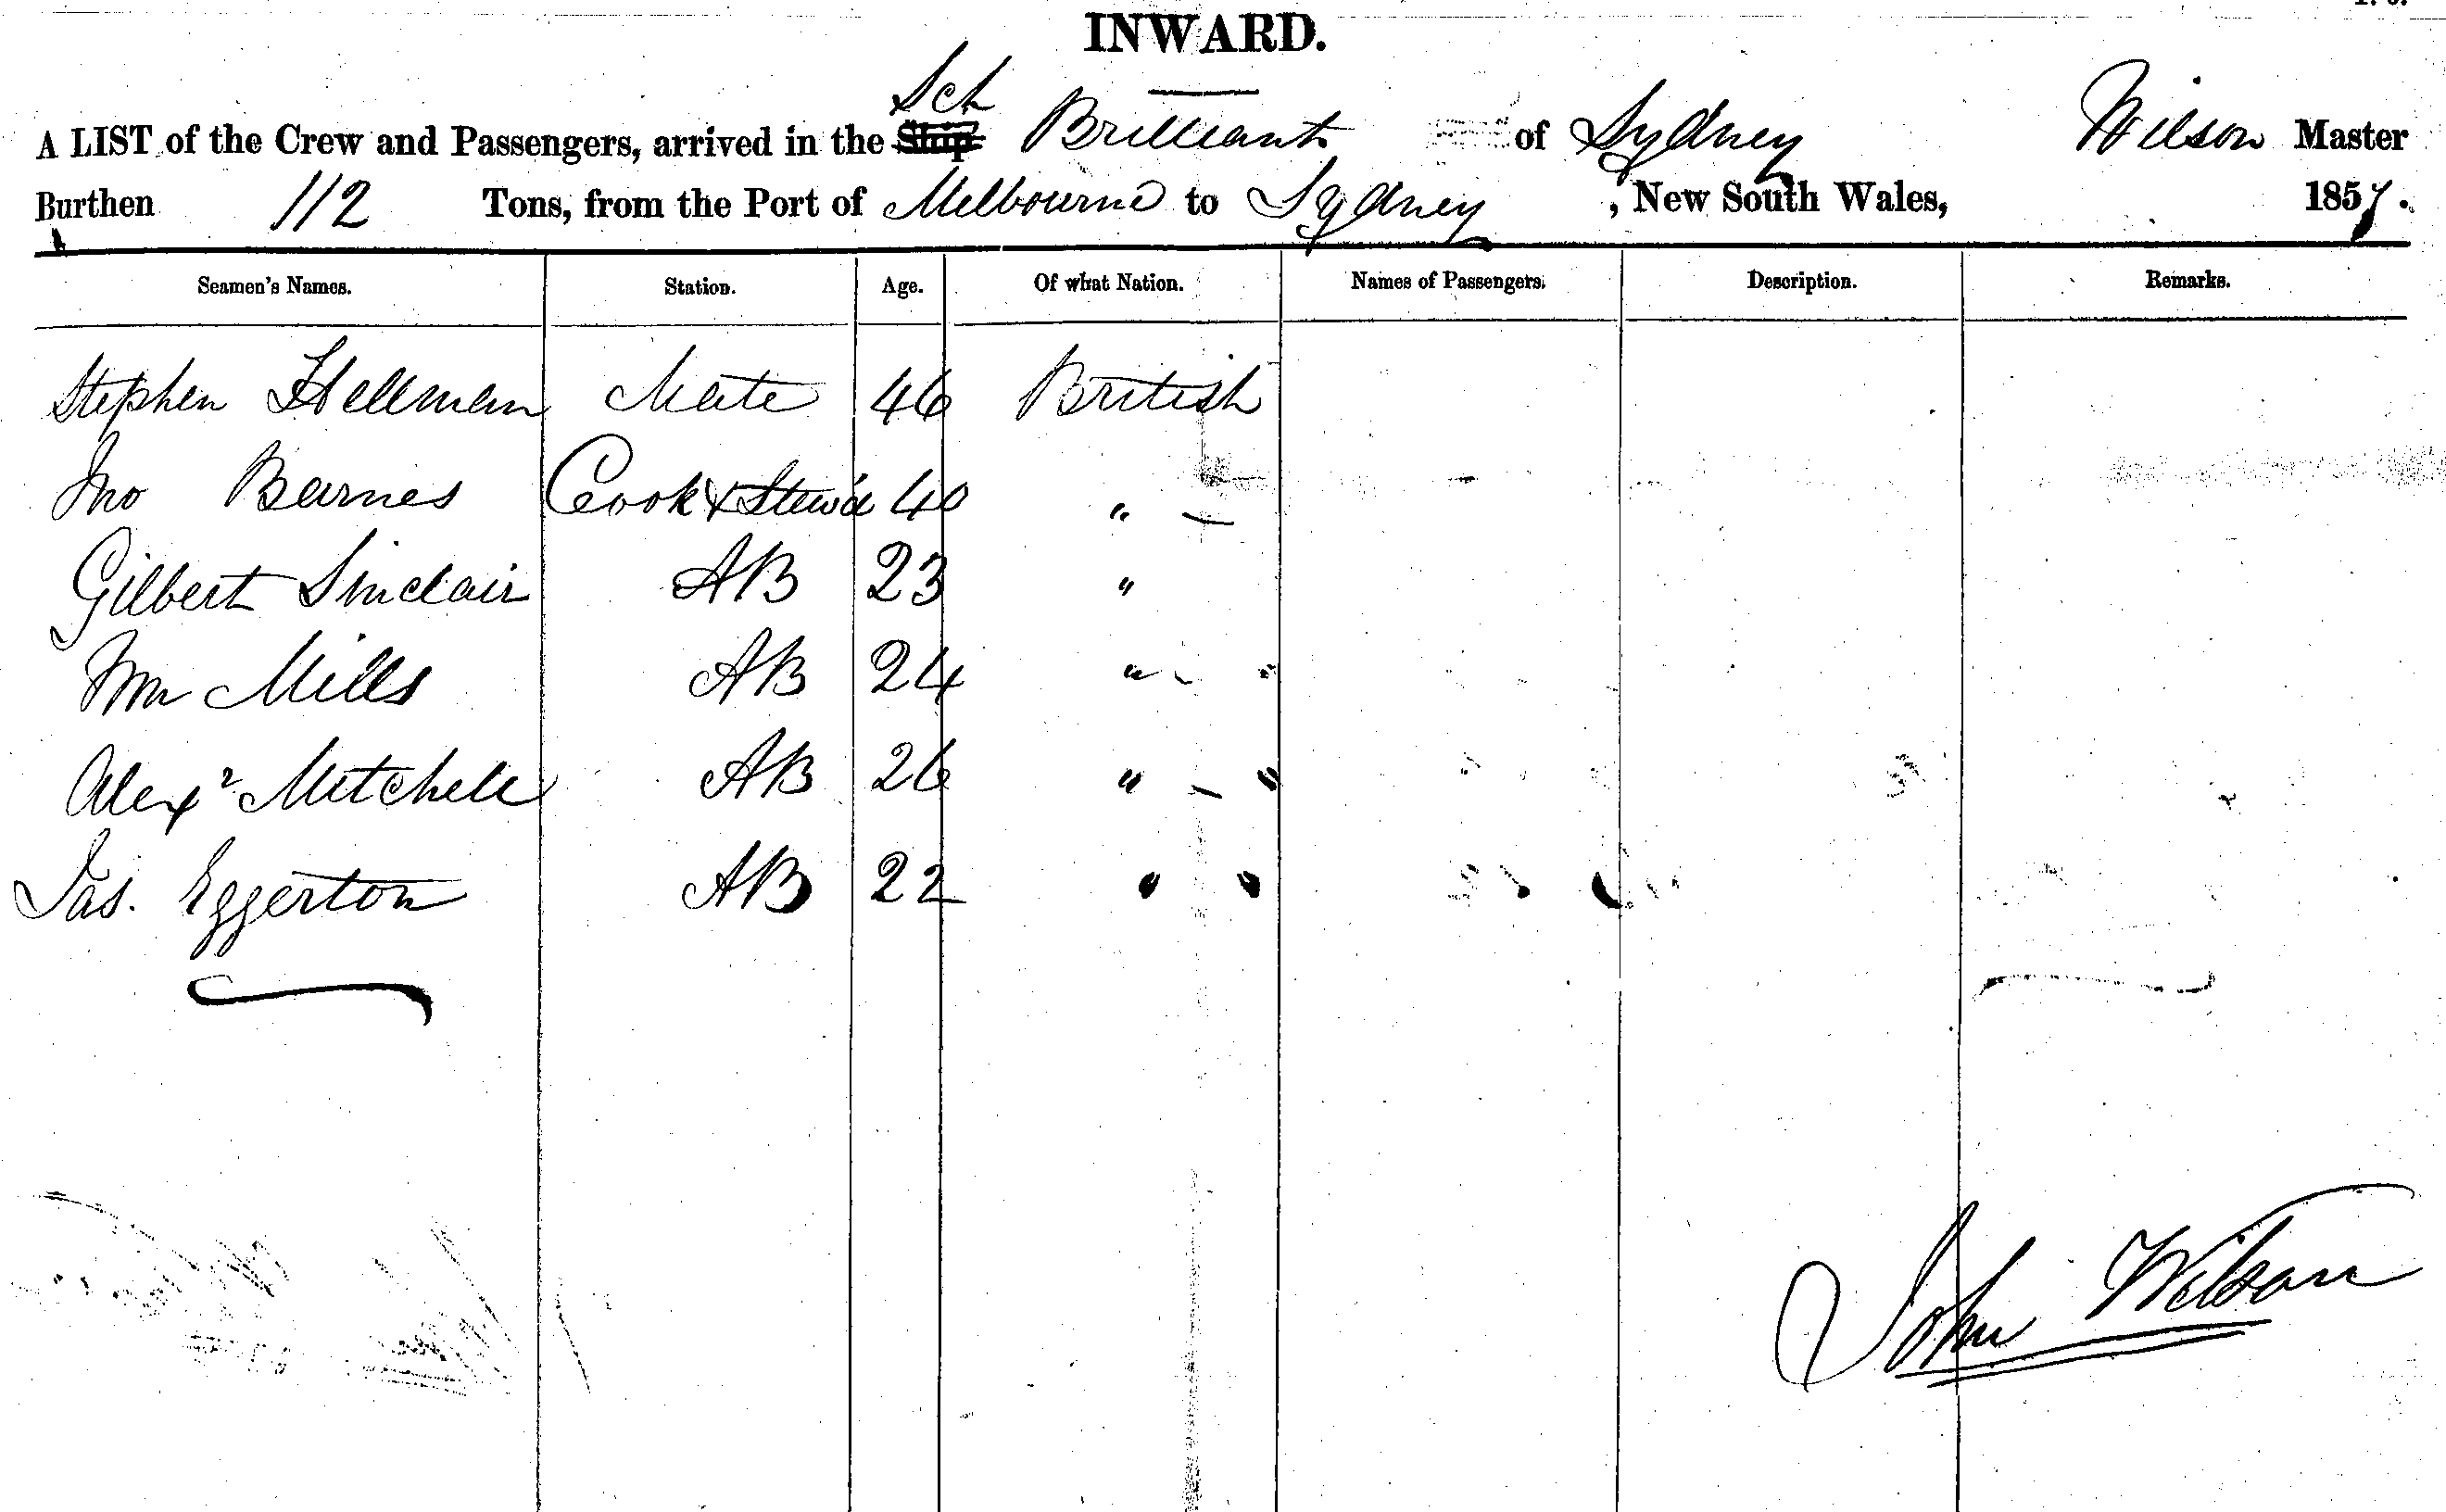 INWARD.
A LIST of the Crew and Passengers, arrived in the Ship Sch Brilliant of Sydney Wilson Master
Burthen 112 Tons, from the Port of Melbourne to Sydney, New South Wales, 1857.
Seamen's Names. Station. Age. Of what Nation. Names of Passengers. Description. Remarks.
Stephen Hellman Mate 46 British
Jno Barnes Cook & Stewd 40 "
Gilbert Sinclair AB 23 "
Wm Mills AB 24 " "
Alexr Mitchell AB 26 " "
Jas. Eggerton AB 22 " "
John Wilson